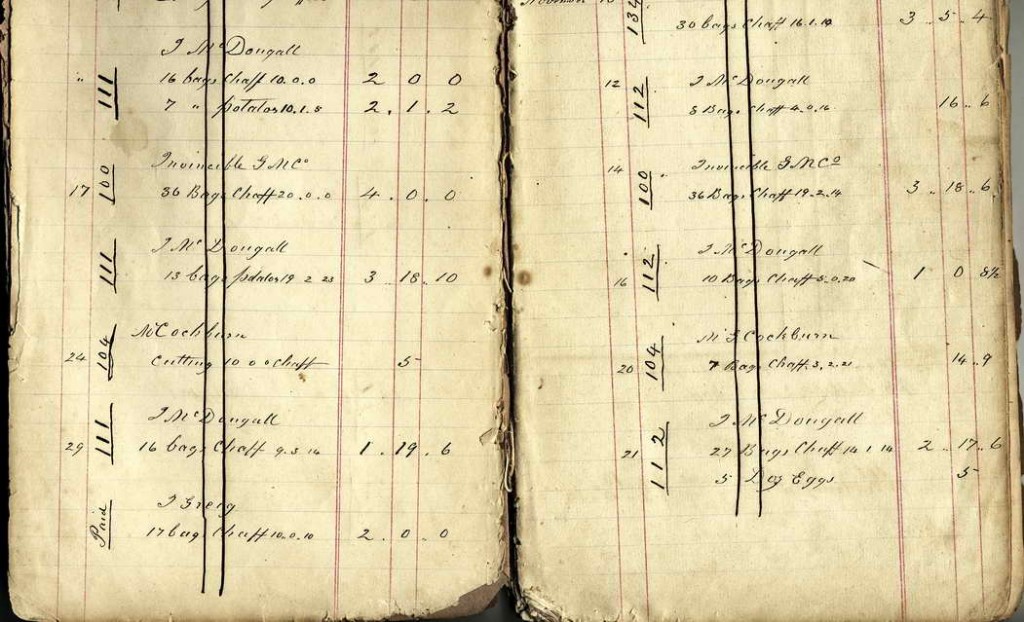 J McDougall
" 111 16 bags Chaff 10.0.0 2 0 0
7 " potatos 10.1.5 2.1.2
Invincible G M Co
17 100 36 Bags Chaff 20.0.0 4.0.0
J McDougall
111 13 bags potatos 19 2 23 3.18.10
M Cockburn
24 104 Cutting 10 0 0 Chaff 5
J McDougall
29 111 16 bags Chaff 9.3.14 1.19.6
J Greig
Paid 17 bags Chaff 10.0.10 2.0.0
134 30 bags Chaff 16.1.14 3.5.4
J McDougall
12 112 8 Bags Chaff 4.0.16 16.6
Invincible G M Co
14 100 36 Bags Chaff 19.2.14 3.18.6
J McDougall
16 112 10 Bags Chaff 5.0.20 1 0 8½
M G Cockburn
20 104 7 Bags Chaff 3.2.21 14.9
J McDougall
21 112 27 Bags Chaff 14.1.14 2.17.6
5 Doz Eggs 5